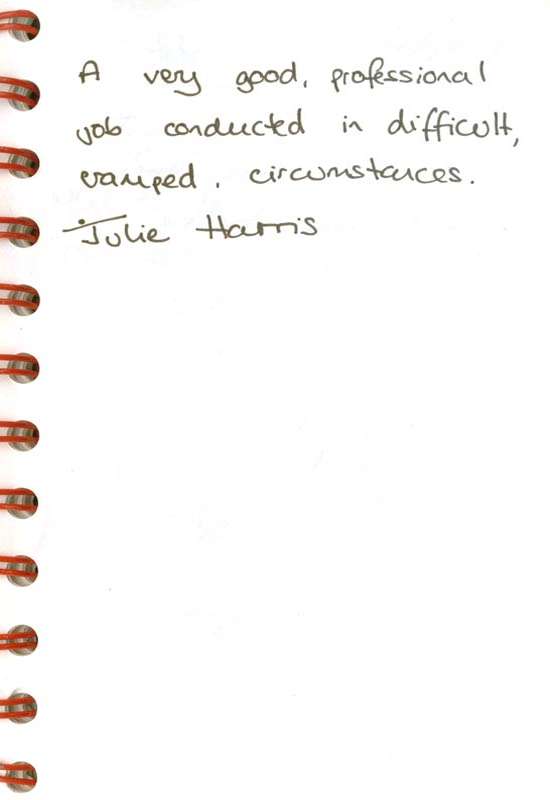 A very good, professional
job conducted in difficult,
cramped, circumstances.
Julie Harris